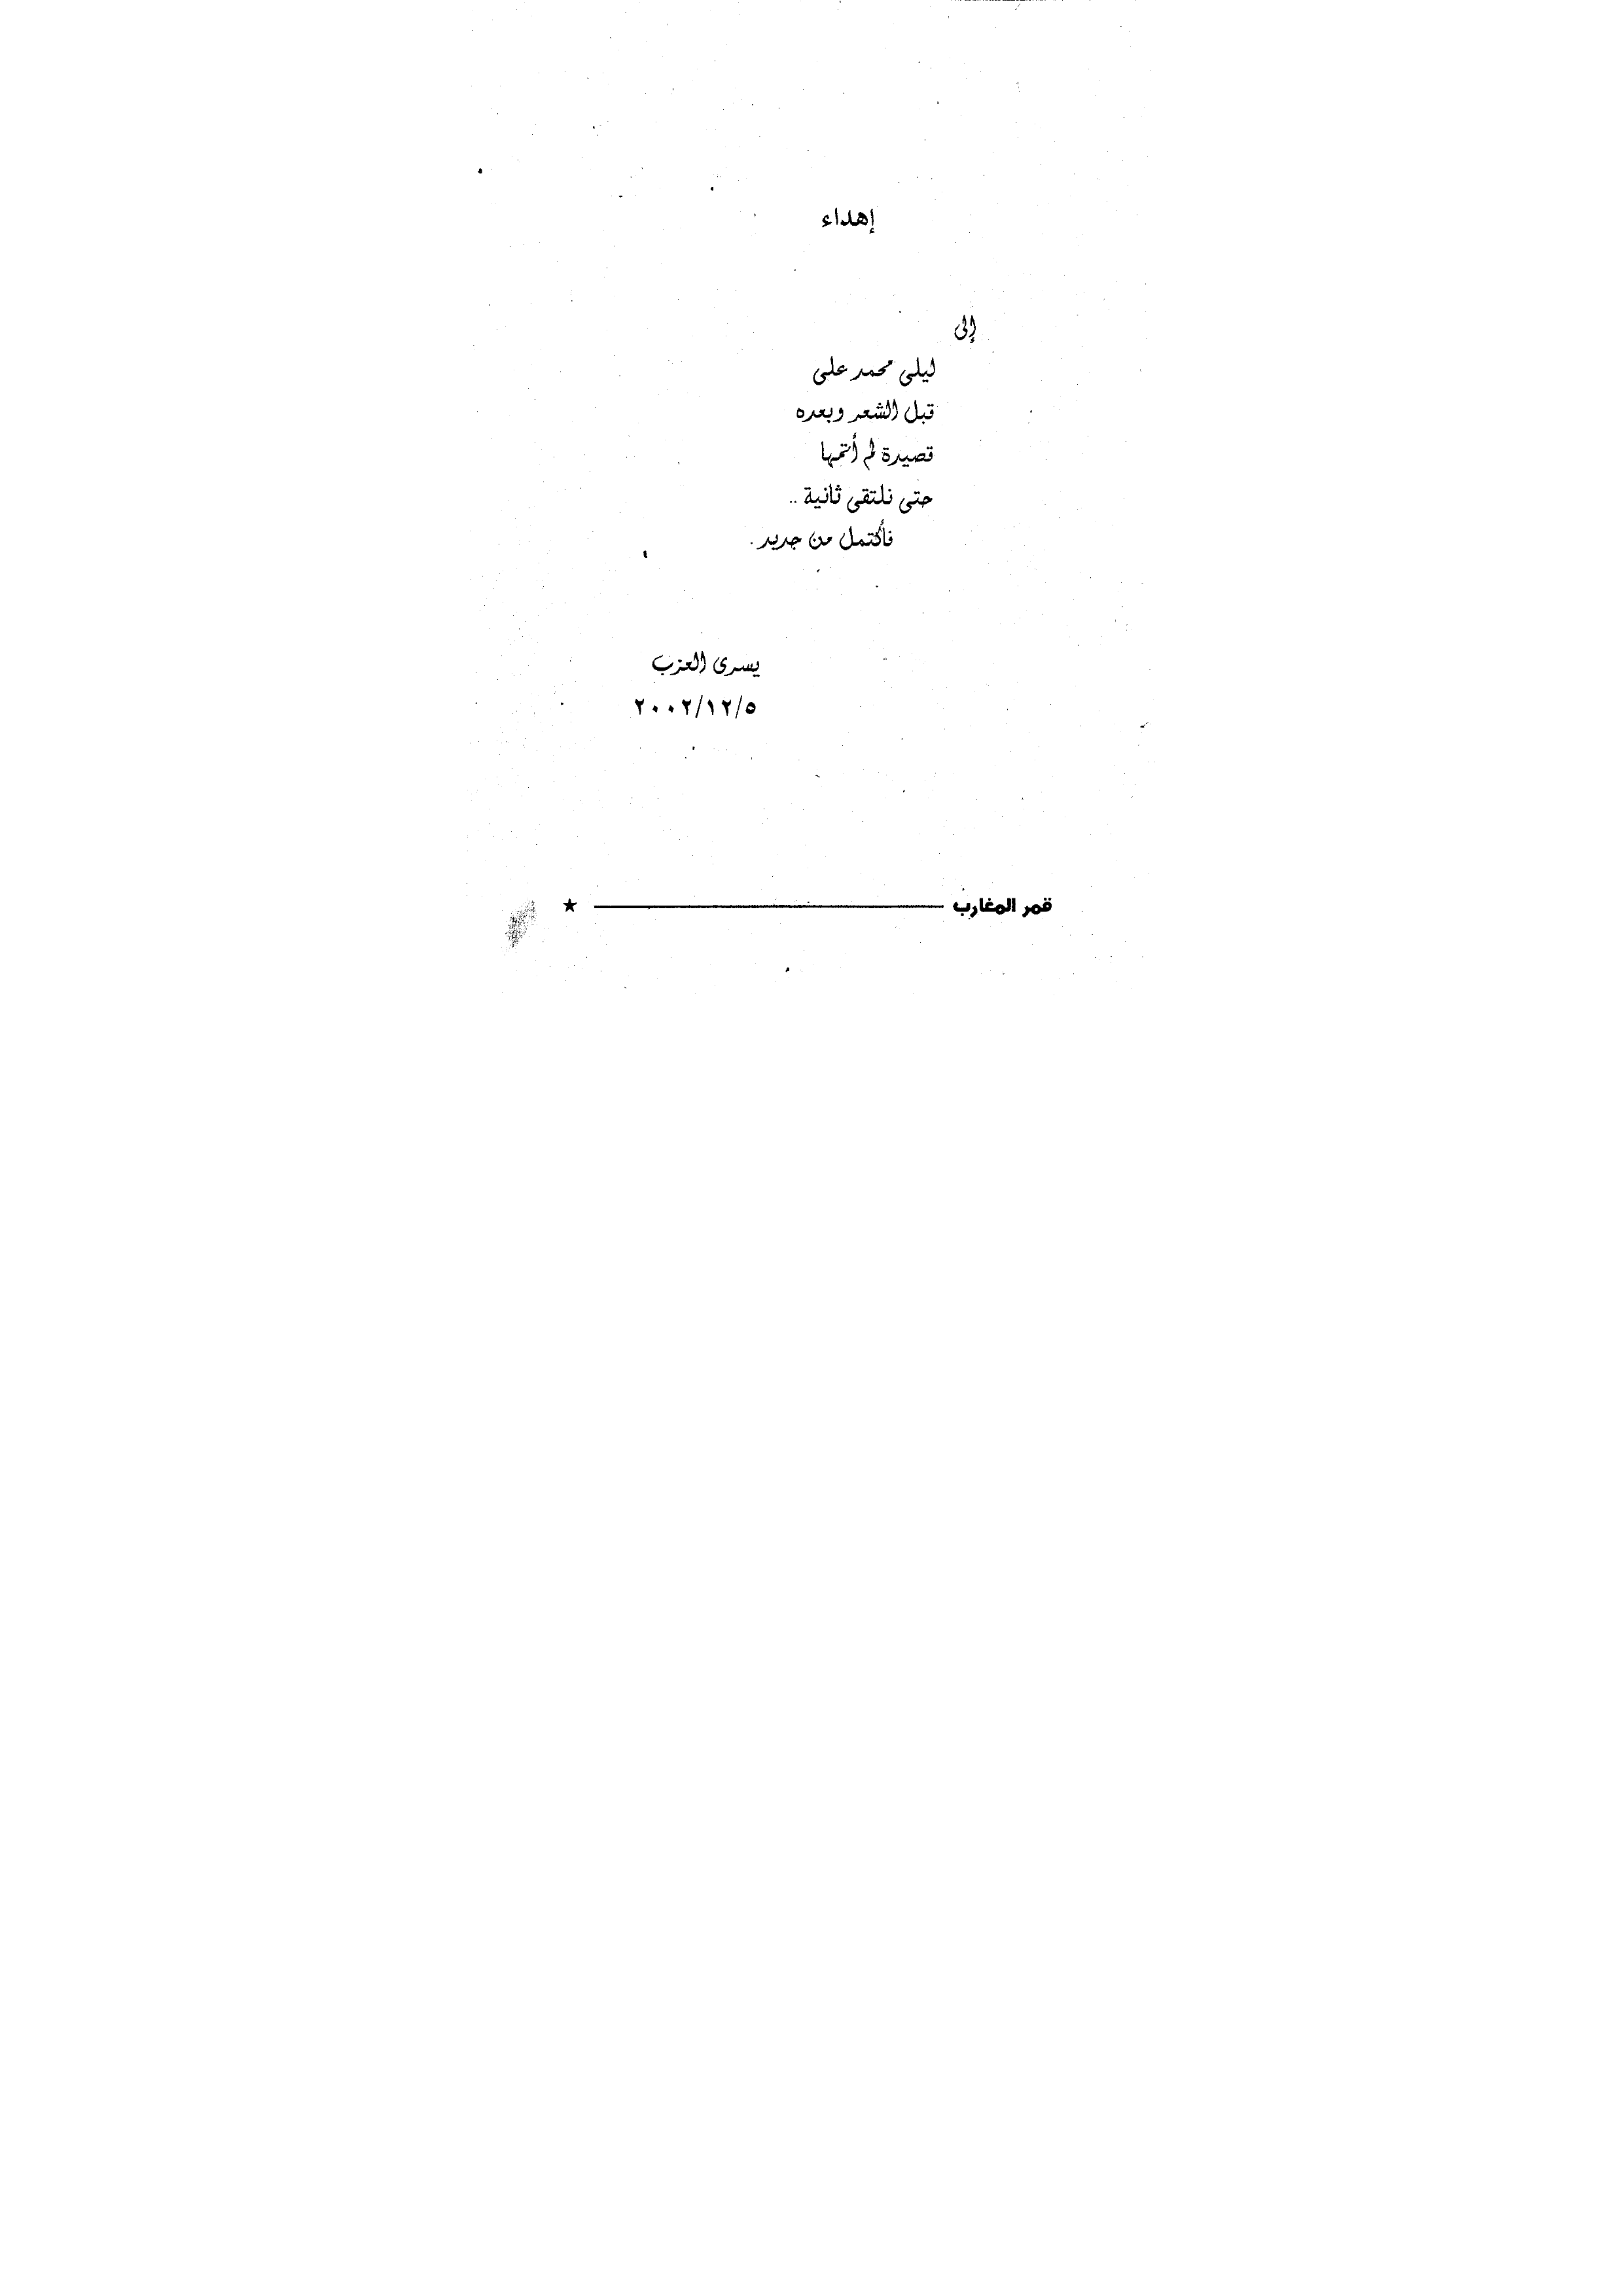 إهداء
إلى
ليلى محمد على
قبل الشعر وبعده
قصيدة لم أتمها
حتى نلتقى ثانية ..
فأكتمل من جديد .
يسرى العزب
٢٠٠٢/١٢/٥
قمر المغارب ★